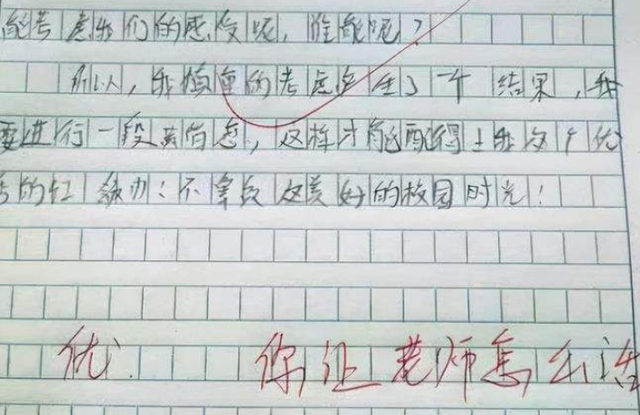 能考虑我们的感受呢,谁能呢?
所以人,我慎重的考虑产生了一个结果,我
要进行一段黄昏恋,这样才能配得上我这个优
秀的红领巾!不辜负这美好的校园时光!
优 你让老师怎么活